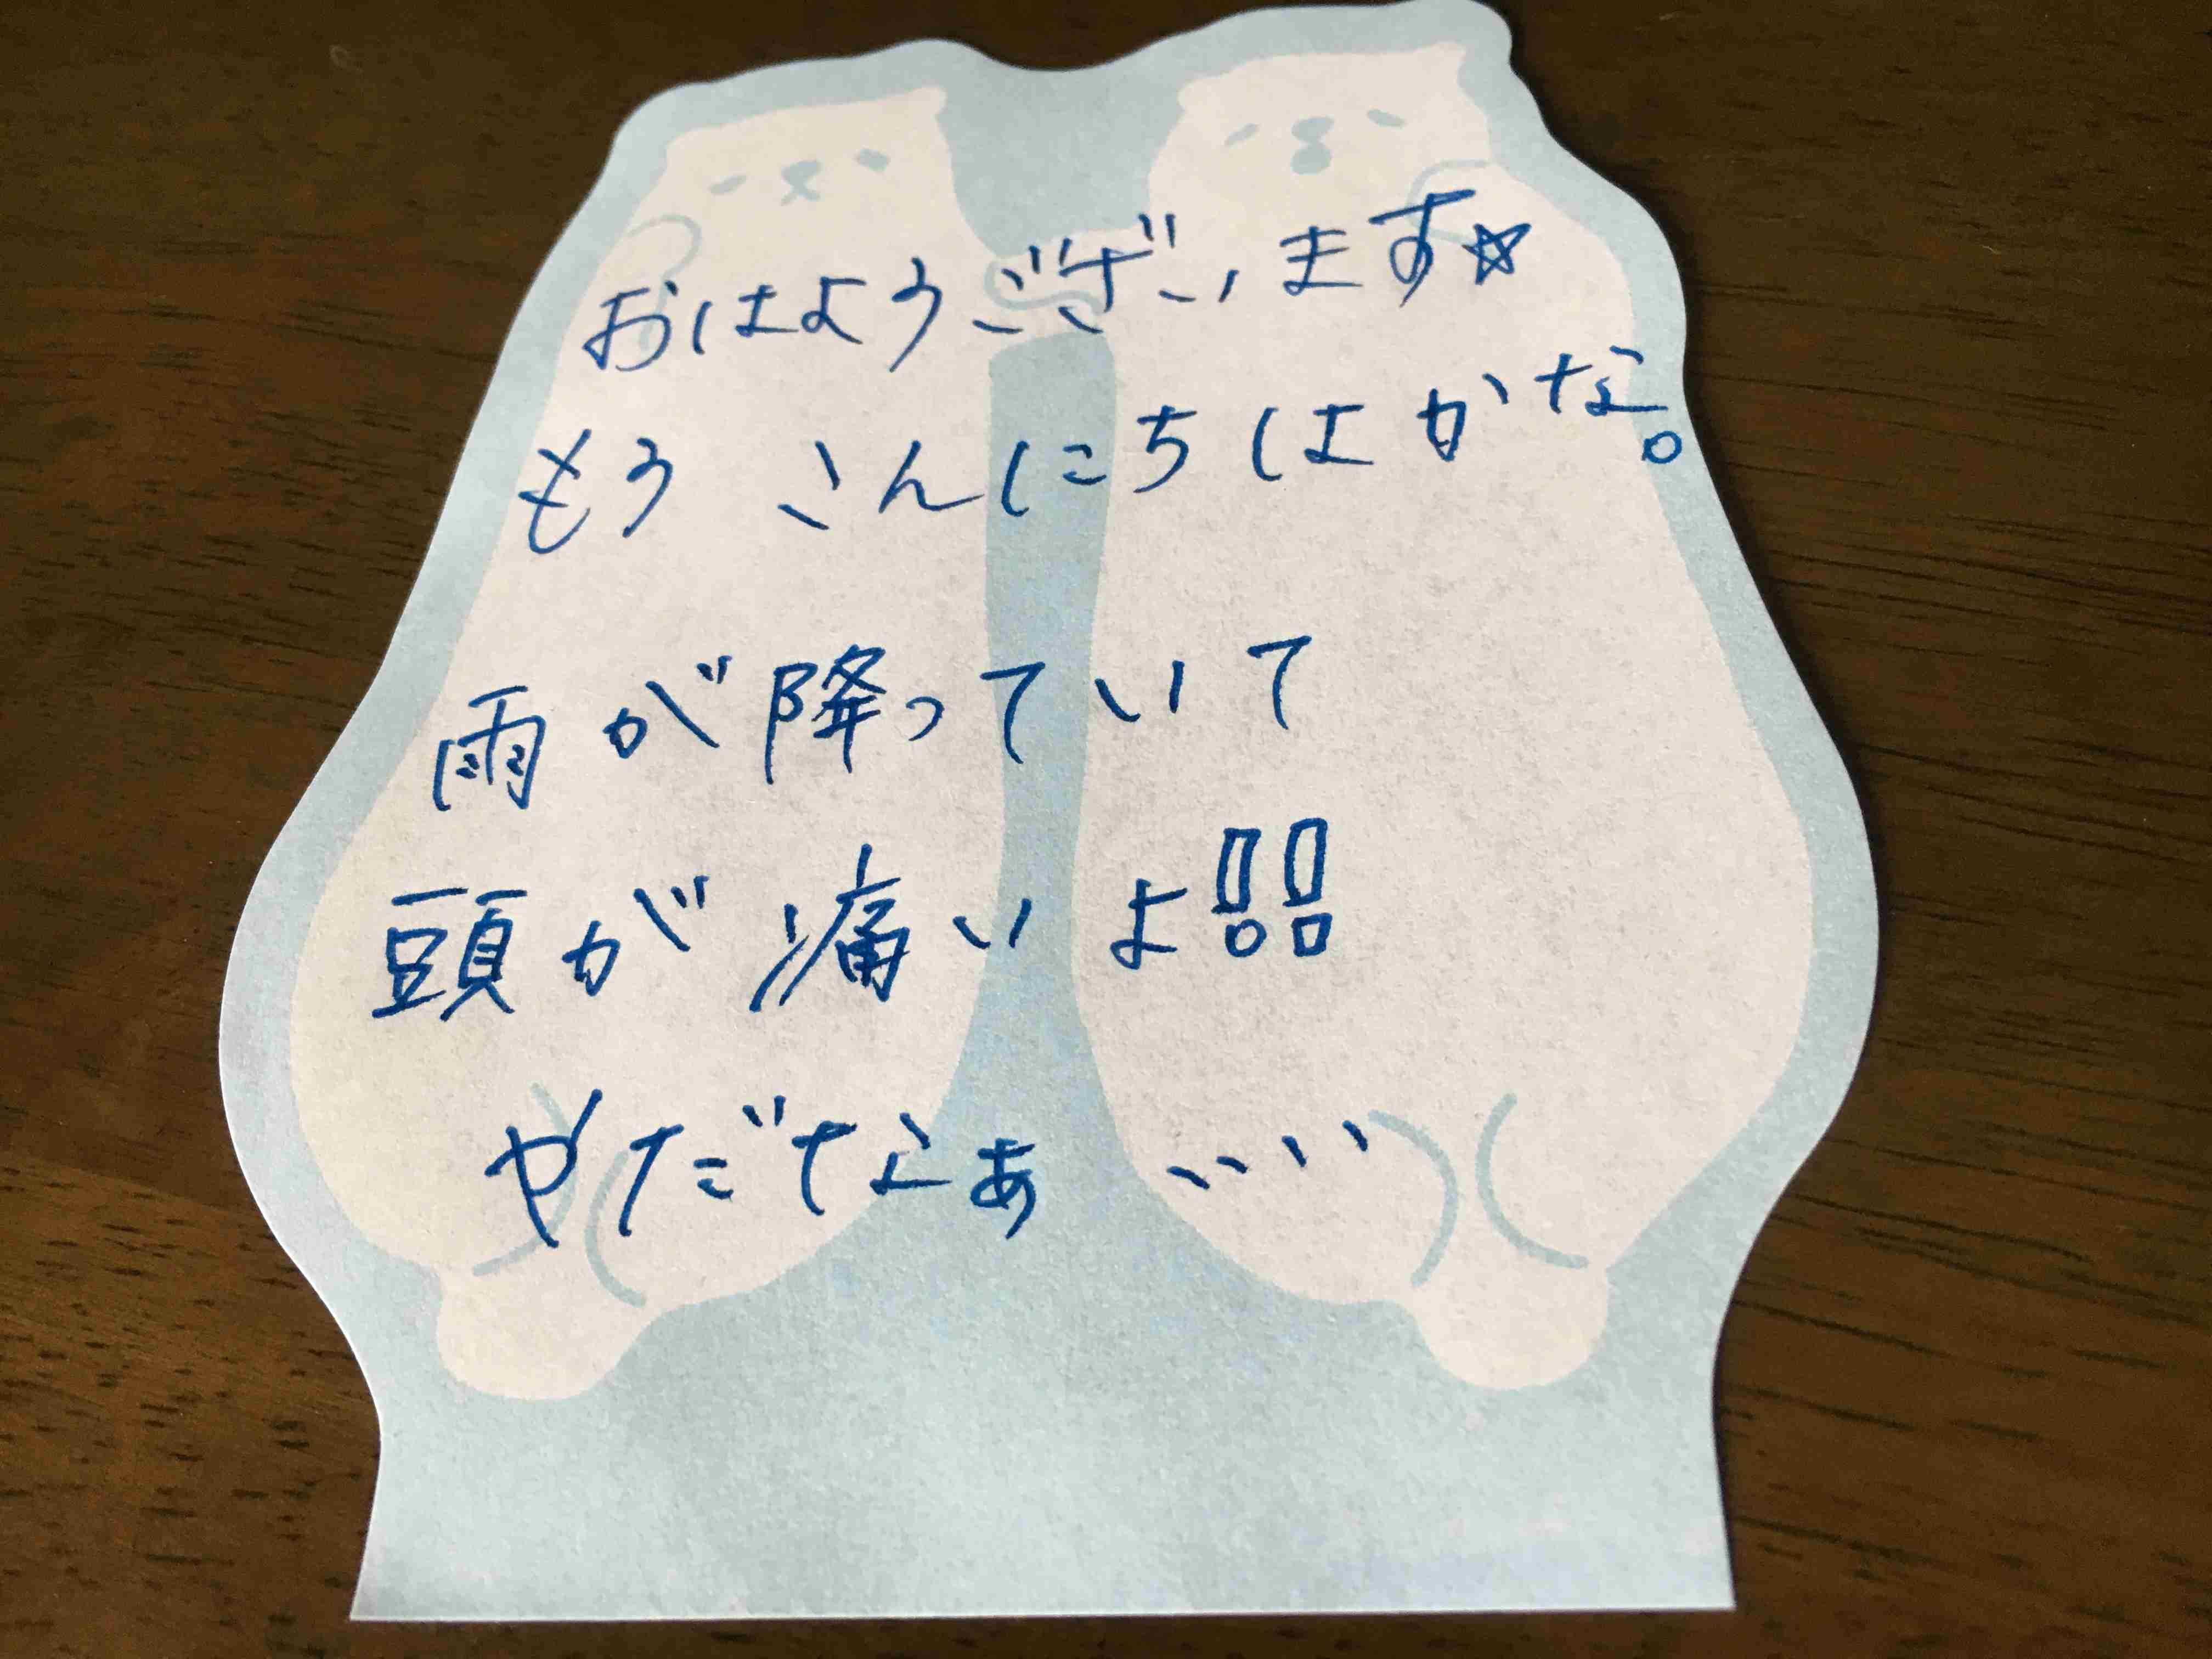 おはようございます☆
もう こんにちはかな。
雨が降っていて
頭が痛いよ!!
やだなぁ ....